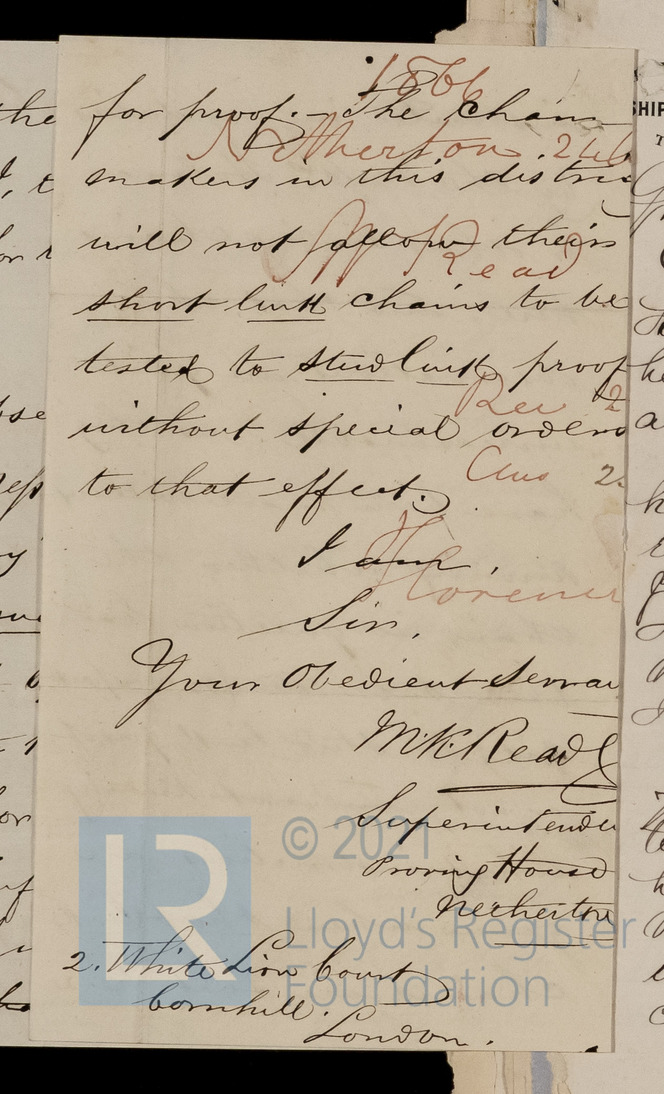 1866
for proof. The chain
Netherton. 246
makers in this distri
will not allow their
W Read
short link chains to be
tested to studlink proof
Rec 2
without special orders
Ans 2.
to that effect.
I am,
Florence
Sir,
Your Obedient Serva
M.K. Read
Superintende
Proving House
Netherton
2. White Lion Court
Cornhill.
London.
© 2021
Lloyd's Register
Foundation
LR
SHIP
the